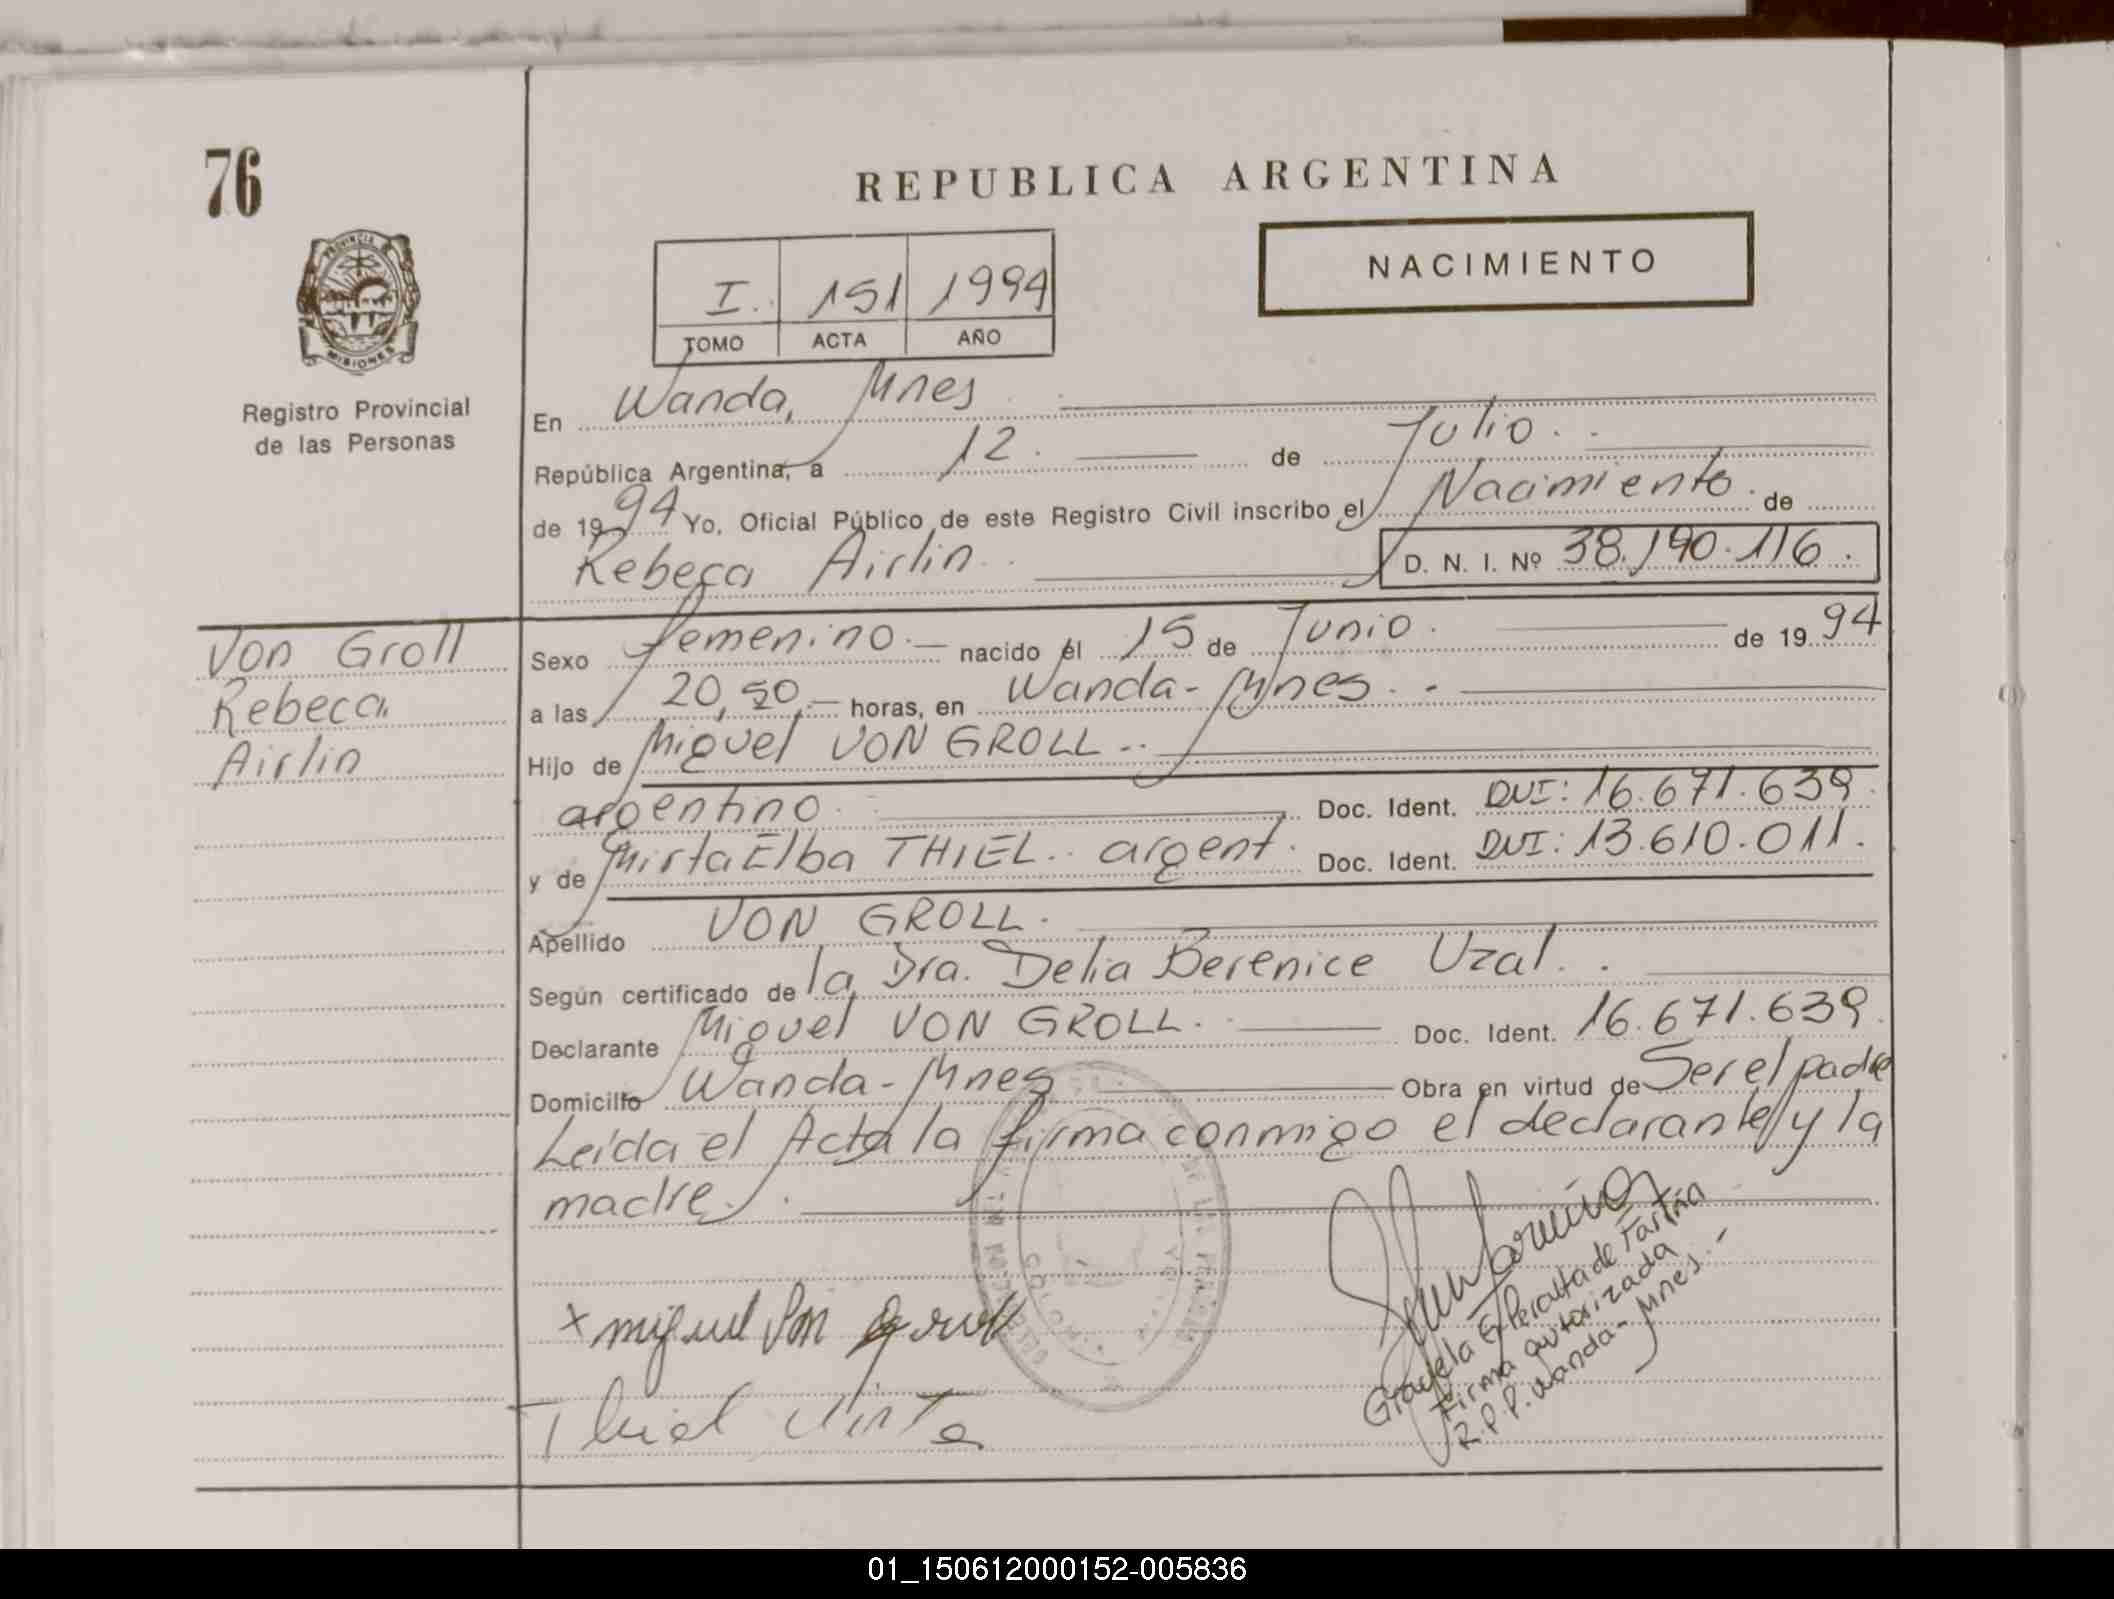 76
REPUBLICA ARGENTINA
NACIMIENTO
I. 151 1994
TOMO ACTA AÑO
PROVINCIA
MISIONES
Registro Provincial
de las Personas
En Wanda, Mnes
República Argentina, a 12. de Julio.
de 1994 Yo, Oficial Público de este Registro Civil inscribo el Nacimiento. de
Rebeca Airlin. D. N. I. Nº 38.190.116.
Von Groll
Rebeca
Airlin
Sexo femenino. nacido el 15 de Junio. de 1994
a las 20,50 horas, en Wanda - Mnes. -
Hijo de Miguel VON GROLL..
argentino. Doc. Ident. DUI: 16.671.639.
y de Mirta Elba THIEL.. argent. Doc. Ident. DUI: 13.610.011.
Apellido VON GROLL.
Según certificado de la Dra. Delia Berenice Uzal..
Declarante Miguel VON GROLL.. Doc. Ident. 16.671.639.
Domicilio Wanda - Mnes Obra en virtud de Ser el padre
Leída el Acta la firma conmigo el declarante y la
madre.
x miguel Von groll
Thiel Mirta
Graciela E. Peralta de Fariña
Firma autorizada
R.P.P. Wanda - Mnes. -
01_150612000152-005836